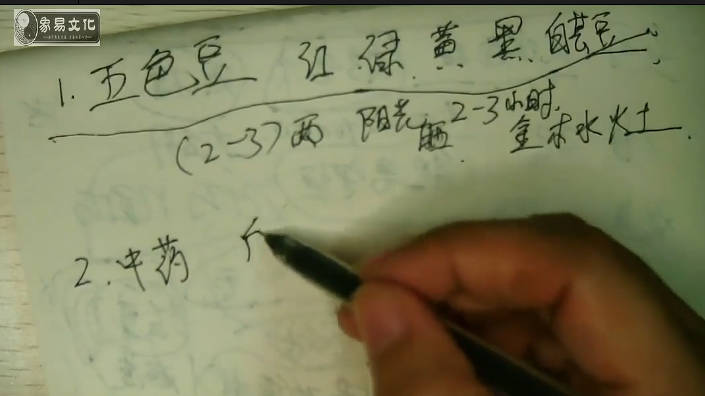 象易文化
1.五色豆 红 绿 黄 黑 白芸豆
(2-3)两 阳光晒 2-3小时, 金木水火土.
2.中药